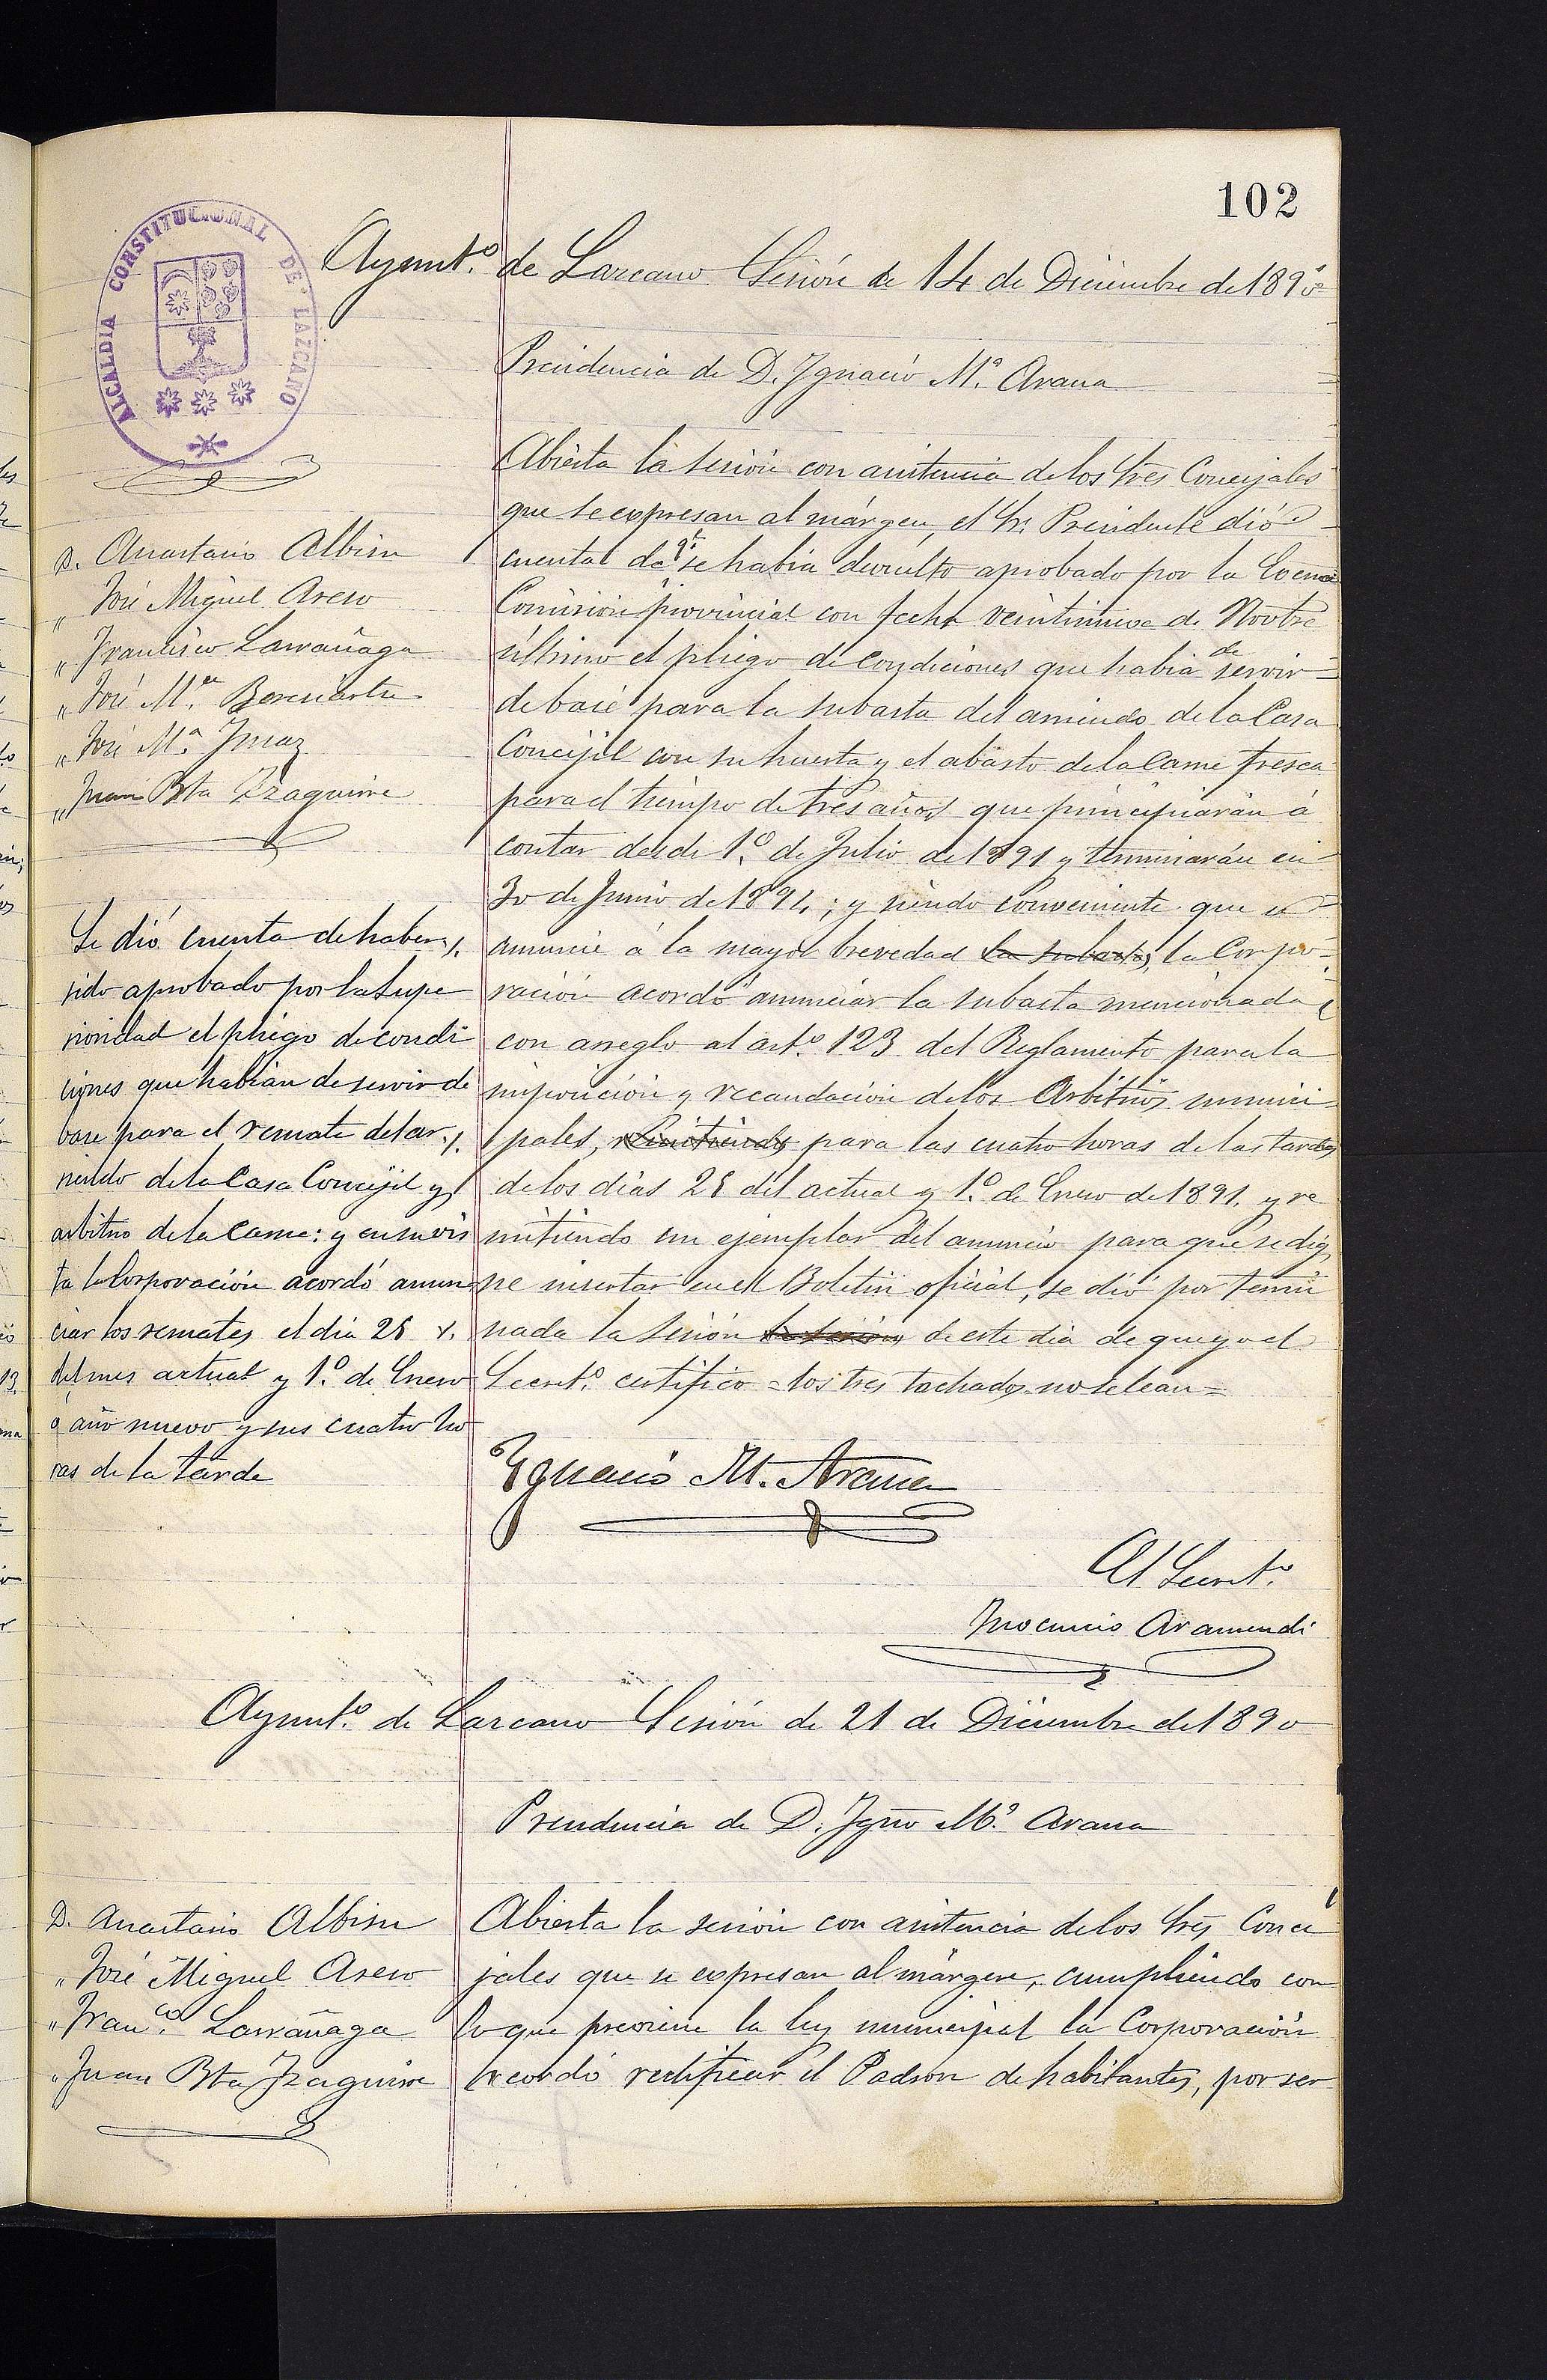 102
ALCALDIA CONSTITUCIONAL DE LAZCANO
Ayunt.º de Lazcano Sesión de 14 de Diciembre de 1890
Presidencia de D. Ignacio M.ª Arana
D. Anastasio Albisu
" José Miguel Aseso
" Francisco Larrañaga
" José M.ª Beraciartu
" José M.ª Imaz
" Juan Bta Izaguirre
Abierta la sesión con asistencia de los Sres Concejales
que se expresan al márgen, el Sr. Presidente dió
cuenta de q.e se habia devuelto aprobado por la Excma
Comisión provincial con fecha veintinueve de Novbre
último el pliego de condiciones que habia de servir
de base para la subasta del arriendo de la Casa
Concejil con su huerta y el abasto de la Carne fresca
para el tiempo de tres años que principiarán á
contar desde 1.º de Julio de 1891 y terminarán en
30 de Junio de 1894; y siendo conveniente que se
anuncie á la mayor brevedad la subasta, la Corpo-
ración acordó anunciar la subasta mencionada
con arreglo al art.º 123 del Reglamento para la
imposición y recaudación de los Arbitrios munici-
pales, remitiendo para las cuatro horas de las tardes
de los días 28 del actual y 1.º de Enero de 1891, y re
mitiendo un ejemplar del anuncio para que se dig
ne insertar en el Boletin oficial, se dió por termi
nada la Sesión la sesión de este dia de que yo el
Secret.º certifico = los tres tachados no se lean =
Se dió cuenta de haber
sido aprobado por la Supe
rioridad el pliego de condi
ciones que habian de servir de
base para el remate del ar
riendo de la Casa Concejil y
arbitrio de la Carne: y en su vis
ta la Corporación acordó anun
ciar los remates el dia 28
del mes actual y 1.º de Enero
ó año nuevo y sus cuatro ho
ras de la tarde
Ygnacio M. Arana
El Secret.º
Inocencio Aramendi
Ayunt.º de Lazcano Sesión de 21 de Diciembre de 1890
Presidencia de D. Igno M.ª Arana
D. Anastasio Albisu
" José Miguel Aseso
" Fran.co Larrañaga
" Juan Bta Izaguirre
Abierta la sesión con asistencia de los Sres Conce
jales que se expresan al márgen, cumpliendo con
lo que previene la ley municipal la Corporación
acordó rectificar el Padron de habitantes, por ser